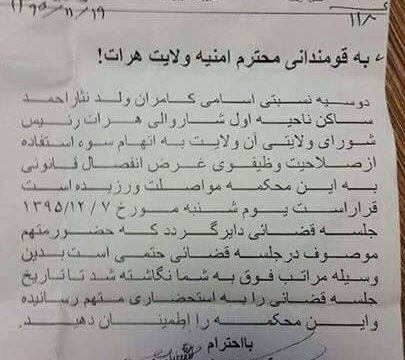 ۱۳۹۵/۱۱/۱۹
۱۱۸
به قومندانی محترم امنیه ولایت هرات!
دوسیه نسبتی اسامی کامران ولد نثار احمد
ساکن ناحیه اول شاروالی هرات رئیس
شورای ولایتی آن ولایت به اتهام سوء استفاده
از صلاحیت وظیفوی غرض انفصال قانونی
به این محکمه مواصلت ورزیده است
قرار است یوم شنبه مورخ ۱۳۹۵/۱۲/۷
جلسه قضائی دایر گردد که حضور متهم
موصوف در جلسه قضائی حتمی است بدین
وسیله مراتب فوق به شما نگاشته شد تا تاریخ
جلسه قضائی را به استحضاری متهم رسانیده
و این محکمه را اطمینان دهید.
با احترام